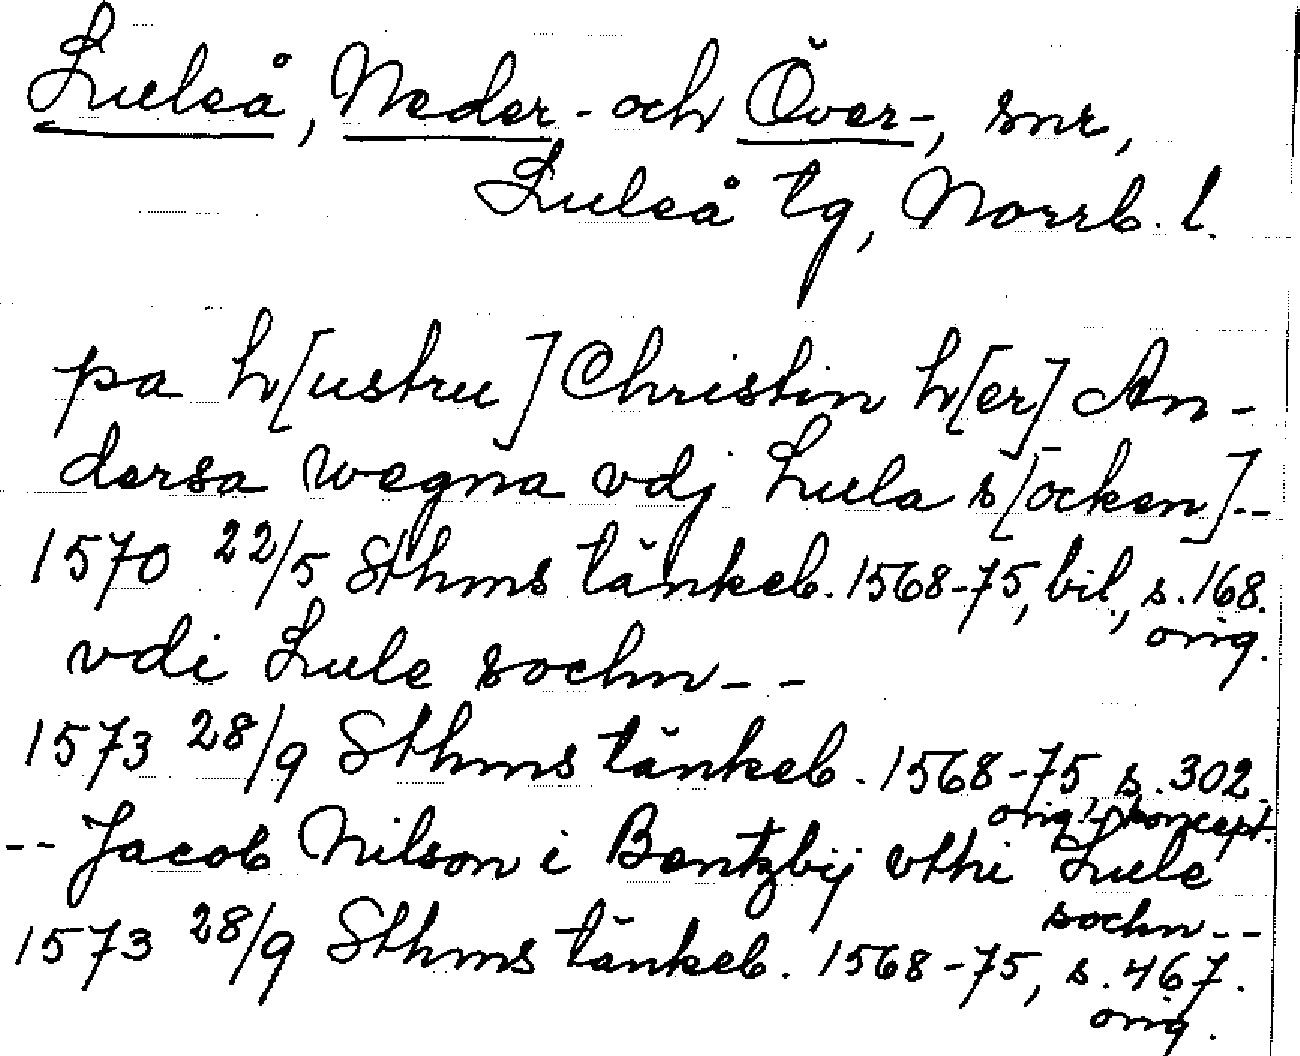 Luleå, Neder- och Över-, snr,
Luleå tg, Norrb. l.
pa h[ustru] Christin h[er] An-
dersa wegna vdj Lula s[ocken]--
1570 22/5 Sthms tänkeb. 1568-75, bil., s. 168.
orig.
vdi Lule sochn--
1573 28/9 Sthms tänkeb. 1568-75, s. 302.
orig. koncept.
-- Jacob Nilson i Bentzbij vthi Lule
sochn--
1573 28/9 Sthms tänkeb. 1568-75, s. 467.
orig.